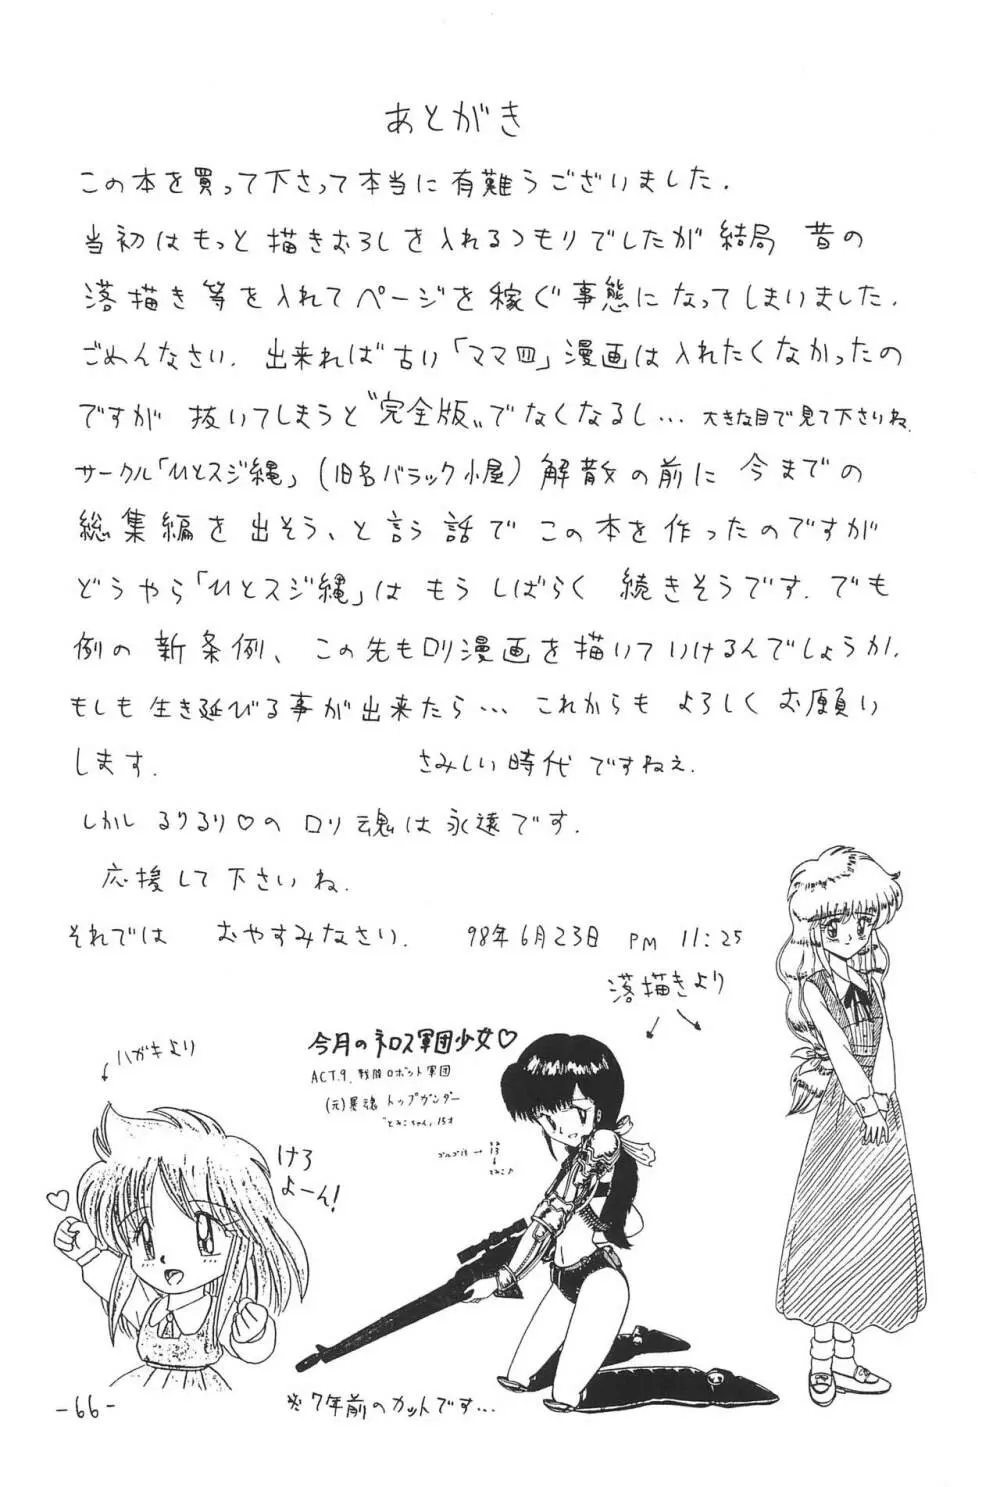 あとがき
この本を買って下さって本当に有難うございました.
当初はもっと描きおろしを入れるつもりでしたが結局 昔の
落描き等を入れてページを稼ぐ事態になってしまいました.
ごめんなさい. 出来れば古い「ママ四」漫画は入れたくなかったの
ですが 抜いてしまうと〝完全版〟でなくなるし… 大きな目で見て下さいね.
サークル「ひとスジ縄」(旧名バラック小屋) 解散の前に 今までの
総集編を出そう、と言う話で この本を作ったのですが
どうやら「ひとスジ縄」は もう しばらく 続きそうです. でも
例の 新条例、この先もロリ漫画を描いていけるんでしょうか.
もしも生き延びる事が出来たら… これからも よろしくお願い
します. さみしい時代ですねぇ.
しかし るりるり♡の ロリ魂は永遠です.
応援して下さいね.
それでは おやすみなさい. 98年6月23日 PM 11:25
落描きより
ハガキより
今月のネロス軍団少女♡
ACT.9. 戦闘ロボット軍団
(元)暴魂 トップガンダー
"とみこちゃん" 15才
ゴルゴ13 → 13
とみこ♪
けろ
よーん!
※7年前のカットです…
-66-